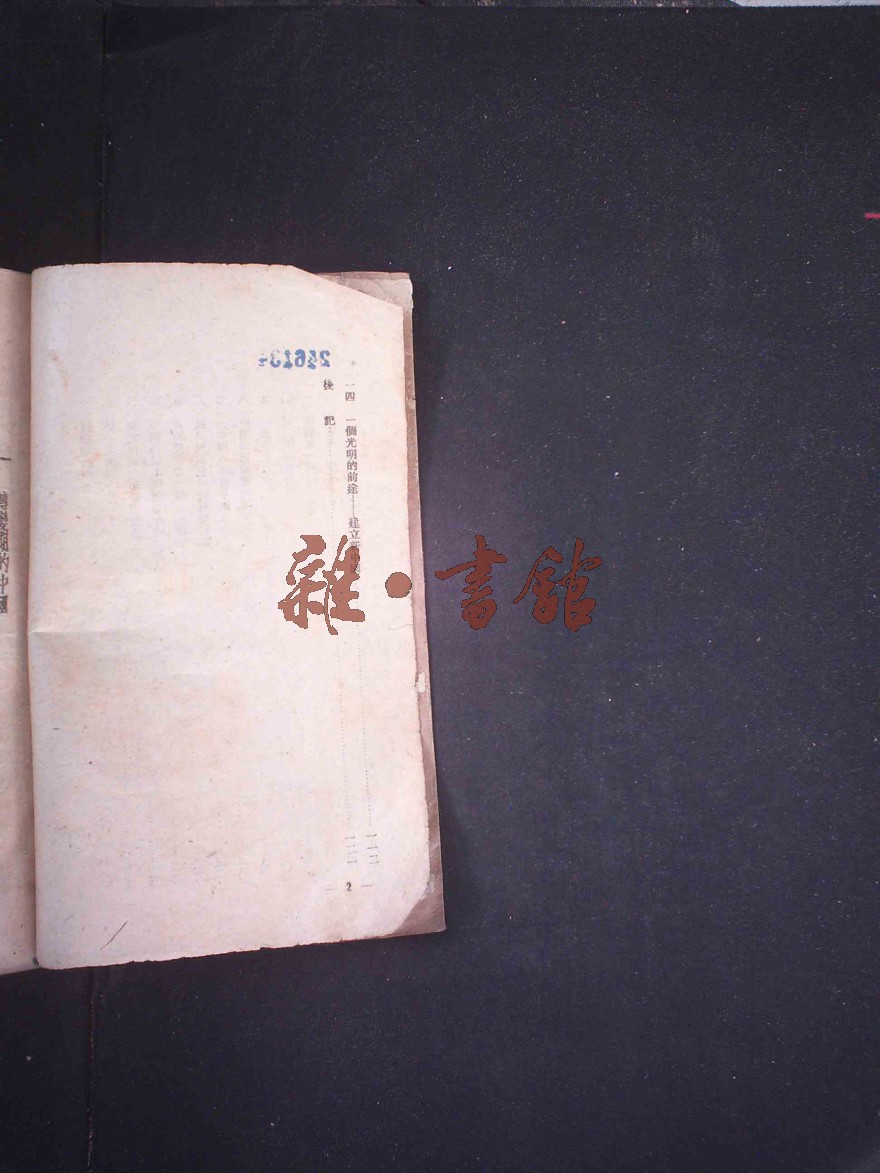 一四 一個光明的前途——建立新中國……一一二
後 記……一二一
— 2 —
的中國
雜·書館